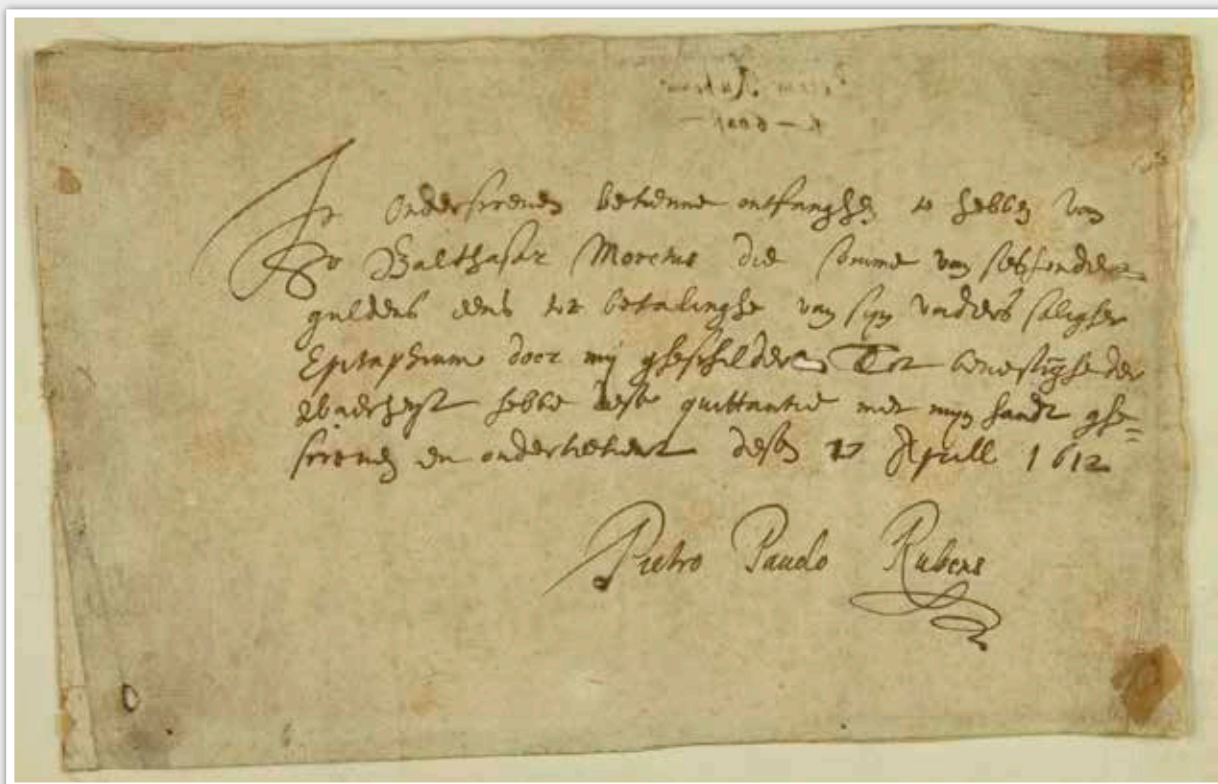 Ic onderscreven bekenne ontfanghen te hebben van
Sr Balthasar Moretus die somme van seshondert
guldens eens tot betalinghe van syn vaders saligher
Epitaphium door mij gheschildert Tot bevestighe der
Waerheyt hebbe dese quittantie met myn handt ghe=
screven en onderteekent desen April 1612
Pietro Pauolo Rubens